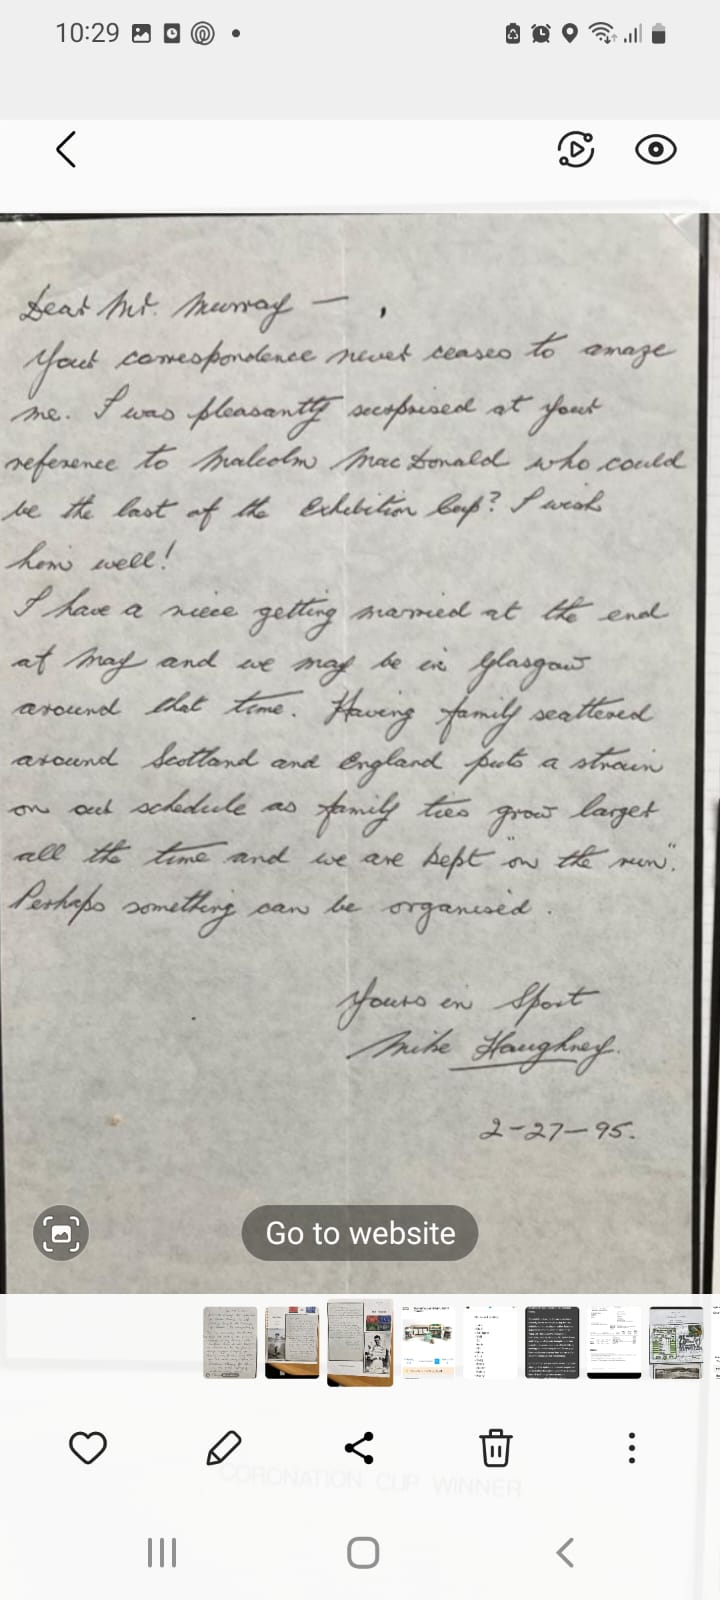 10:29
Dear Mr. Murray — ,
Your correspondence never ceases to amaze
me. I was pleasantly surprised at your
reference to Malcolm MacDonald who could
be the last of the Exhibition Cup? I wish
him well!
I have a niece getting married at the end
at May and we may be in Glasgow
around that time. Having family scattered
around Scotland and England puts a strain
on our schedule as family ties grow larger
all the time and we are kept "on the run".
Perhaps something can be organised.
Yours in Sport
Mike Haughney.
2-27-95.
Go to website
CORONATION CUP WINNER